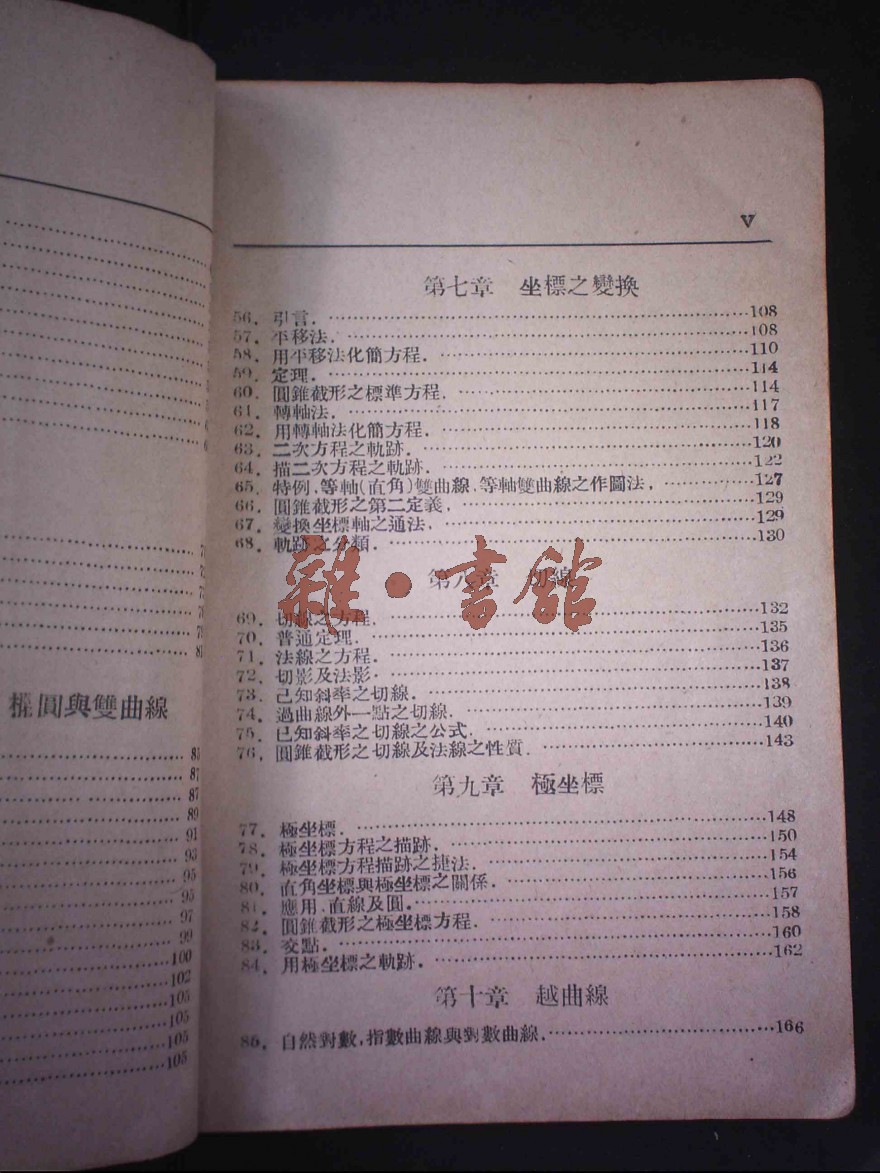 橢圓與雙曲線
85
87
87
89
91
93
95
95
97
99
100
102
105
105
105
105
V
第七章 坐標之變換
56. 引言. 108
57. 平移法. 108
58. 用平移法化簡方程. 110
59. 定理. 114
60. 圓錐截形之標準方程. 114
61. 轉軸法. 117
62. 用轉軸法化簡方程. 118
63. 二次方程之軌跡. 120
64. 描二次方程之軌跡. 122
65. 特例,等軸(直角)雙曲線,等軸雙曲線之作圖法. 127
66. 圓錐截形之第二定義. 129
67. 變換坐標軸之通法. 129
68. 軌跡之分類. 130
雜·書館
第八章 切線
69. 切線之方程. 132
70. 普通定理. 135
71. 法線之方程. 136
72. 切影及法影. 137
73. 已知斜率之切線. 138
74. 過曲線外一點之切線. 139
75. 已知斜率之切線之公式. 140
76. 圓錐截形之切線及法線之性質. 143
第九章 極坐標
77. 極坐標. 148
78. 極坐標方程之描跡. 150
79. 極坐標方程描跡之捷法. 154
80. 直角坐標與極坐標之關係. 156
81. 應用.直線及圓. 157
82. 圓錐截形之極坐標方程. 158
83. 交點. 160
84. 用極坐標之軌跡. 162
第十章 越曲線
85. 自然對數,指數曲線與對數曲線. 166